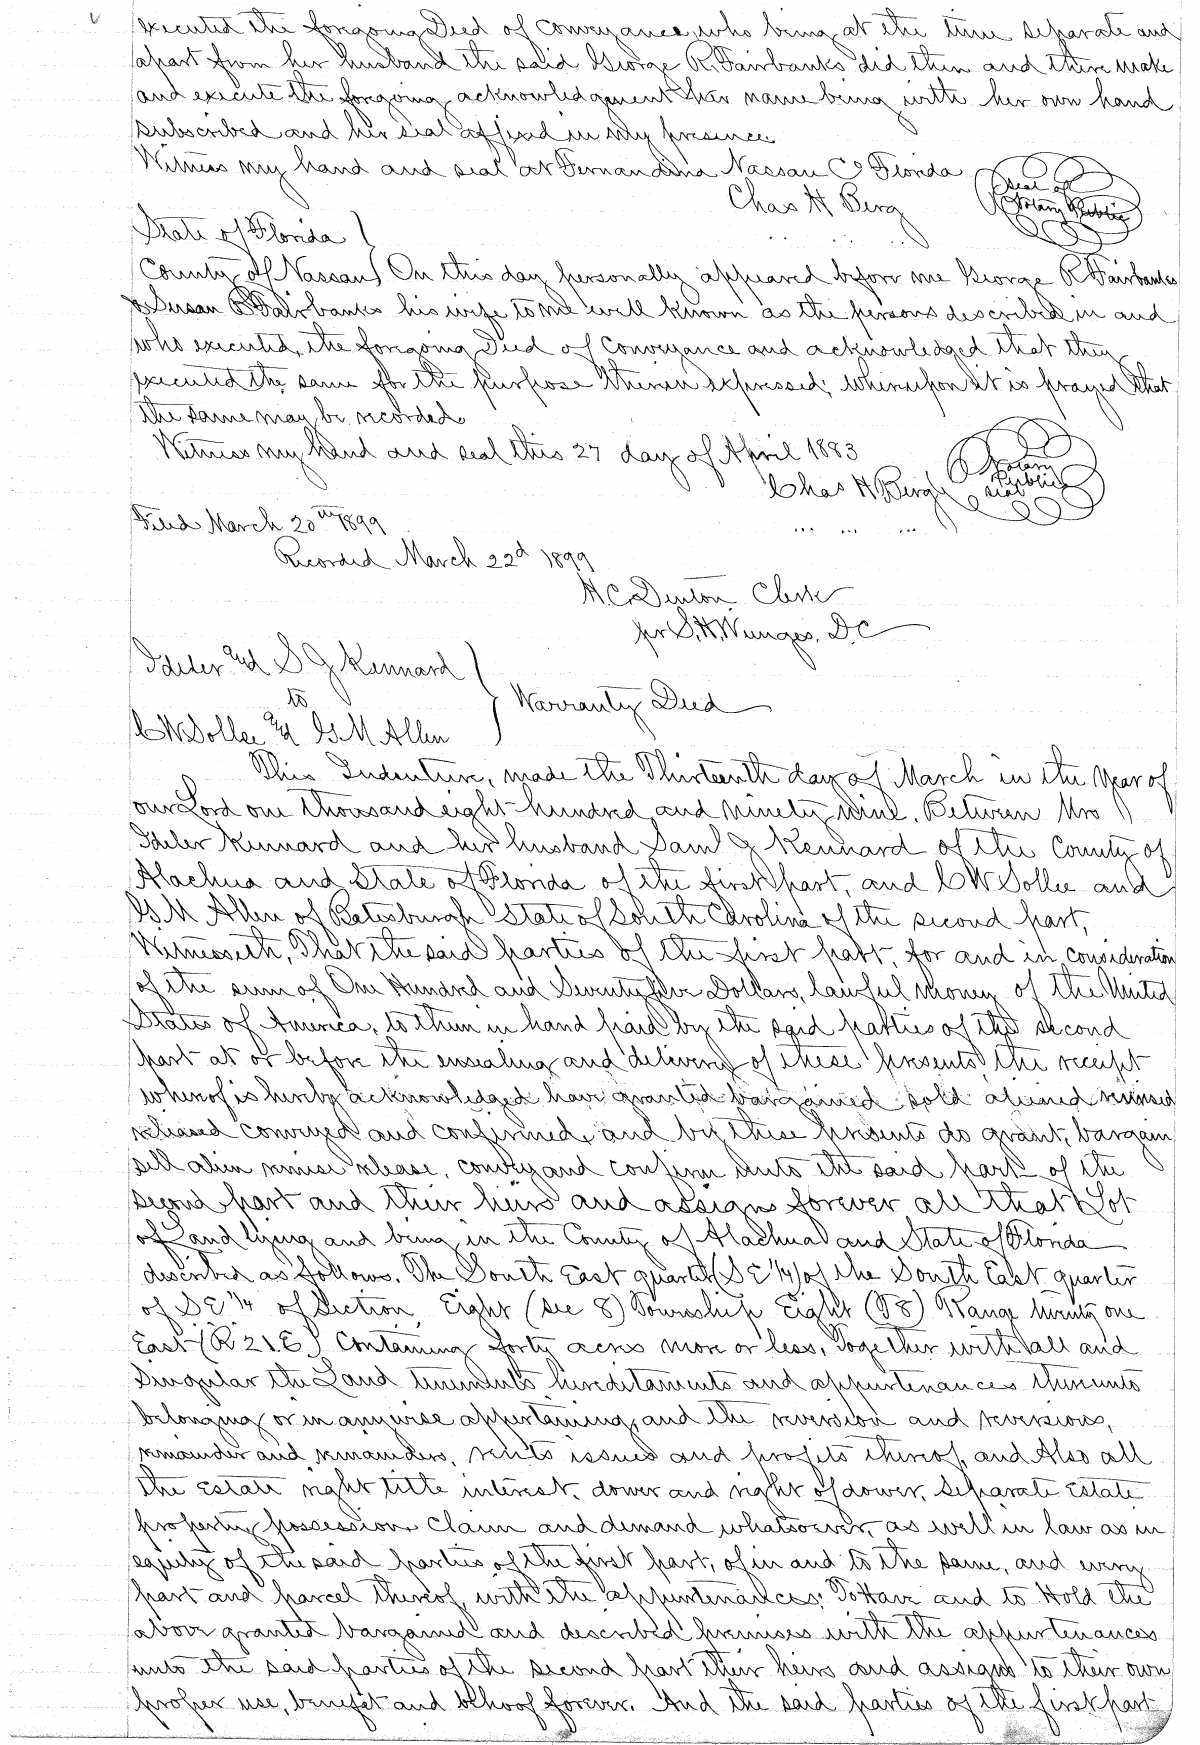 executed the forgoing Deed of Conveyance, who being at the time separate and
apart from her husband the said George R. Fairbanks, did then and there make
and execute the forgoing acknowledgment her name being with her own hand
subscribed and her seal affixed in my presence.
Witness my hand and seal at Fernandina Nassau Co Florida
Chas H Berg
Seal of
Notary Public
State of Florida
County of Nassau On this day personally appeared before me George R Fairbanks
& Susan B Fairbanks his wife to me well known as the persons described in and
who executed, the forgoing Deed of Conveyance and acknowledged that they
executed the same for the purpose therein expressed; whereupon it is prayed that
the same may be recorded.
Witness my hand and seal this 27 day of April 1883
Chas H Berg
Notary
Public
seal
Filed March 20th 1899
Recorded March 22d 1899
H.C. Denton Clerk
pr S.H. Wienges, D.C
Ideler and S G Kennard
to
C W Sollee and G M Allen
Warranty Deed
This Indenture, made the Thirteenth day of March in the Year of
our Lord one thousand eight hundred and ninety nine. Between Mrs
Ideler Kennard and her husband Saml G Kennard of the County of
Alachua and State of Florida of the first part, and C W Sollee and
G M Allen of Batesburgh State of South Carolina of the second part,
Witnesseth, That the said parties of the first part, for and in consideration
of the sum of One Hundred and Seventy five Dollars, lawful money of the United
States of America, to them in hand paid by the said parties of the second
part at or before the ensealing and delivery of these presents, the receipt
whereof is hereby acknowledged have granted bargained sold aliened remised
released conveyed and confirmed, and by these presents do grant, bargain
sell alien remise release, convey and confirm unto the said part of the
second part and their heirs and assigns forever all that Lot
of Land lying and being in the County of Alachua and State of Florida
described as follows. The South East quarter (S E 1/4) of the South East quarter
of S E 1/4 of Section Eight (Sec 8) Township Eight (T 8) Range twenty one
East (R 21. E.) Containing forty acres more or less, Together with all and
Singular the Land tenements hereditaments and appurtenances thereunto
belonging or in anywise appertaining, and the reversion and reversions,
remainder and remainders, rents issues and profits thereof, and Also all
the Estate right title interest, dower and right of dower, Separate Estate
property, possession claim and demand whatsoever, as well in law as in
equity of the said parties of the first part, of in and to the same, and every
part and parcel thereof, with the appurtenances; To Have and to Hold the
above granted bargained and described premises with the appurtenances
unto the said parties of the second part their heirs and assigns to their own
proper use, benefit and behoof forever. And the said parties of the first part